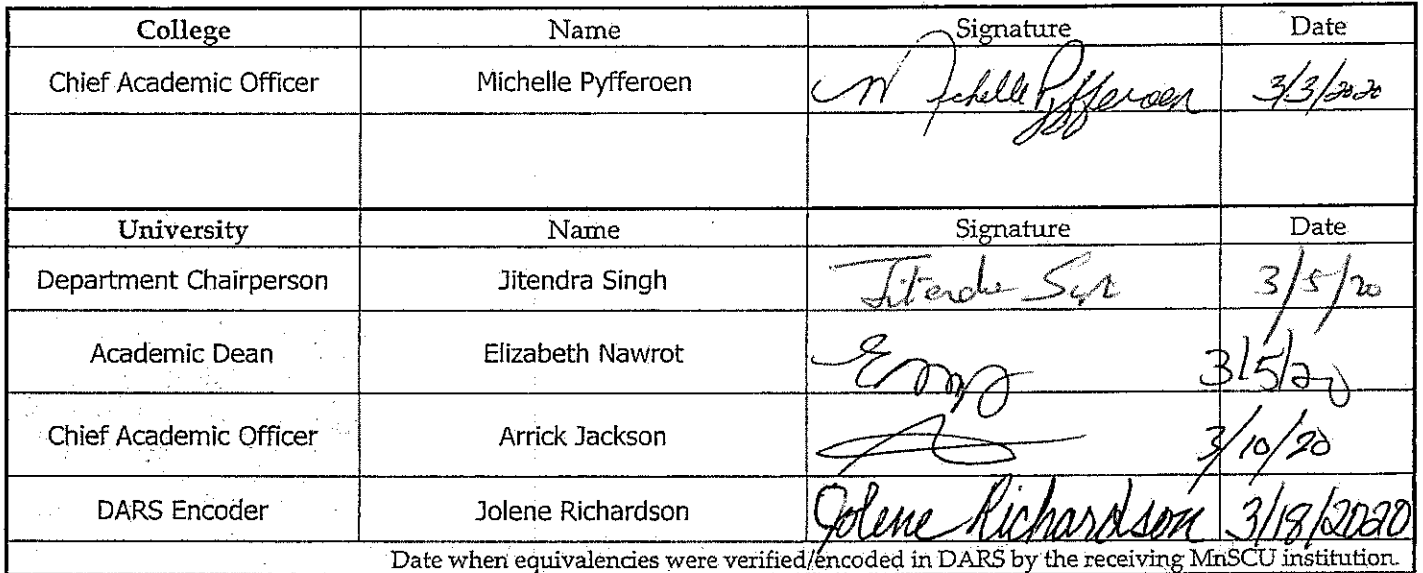 College Name Signature Date
Chief Academic Officer Michelle Pyfferoen Michelle Pyfferoen 3/3/2020
University Name Signature Date
Department Chairperson Jitendra Singh 3/5/20
Academic Dean Elizabeth Nawrot 3/5/20
Chief Academic Officer Arrick Jackson 3/10/20
DARS Encoder Jolene Richardson Jolene Richardson 3/18/2020
Date when equivalencies were verified/encoded in DARS by the receiving MnSCU institution.